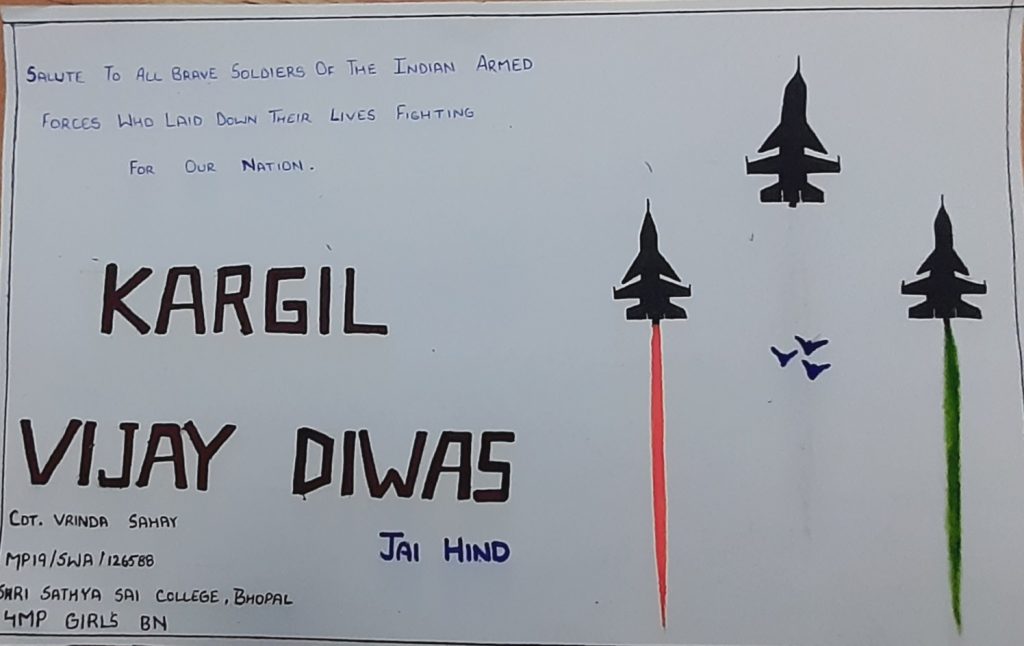 SALUTE TO ALL BRAVE SOLDIERS OF THE INDIAN ARMED
FORCES WHO LAID DOWN THEIR LIVES FIGHTING
FOR OUR NATION.
KARGIL
VIJAY DIWAS
JAI HIND
CDT. VRINDA SAHAY
MP19/SWA/126588
SHRI SATHYA SAI COLLEGE, BHOPAL
4MP GIRLS BN